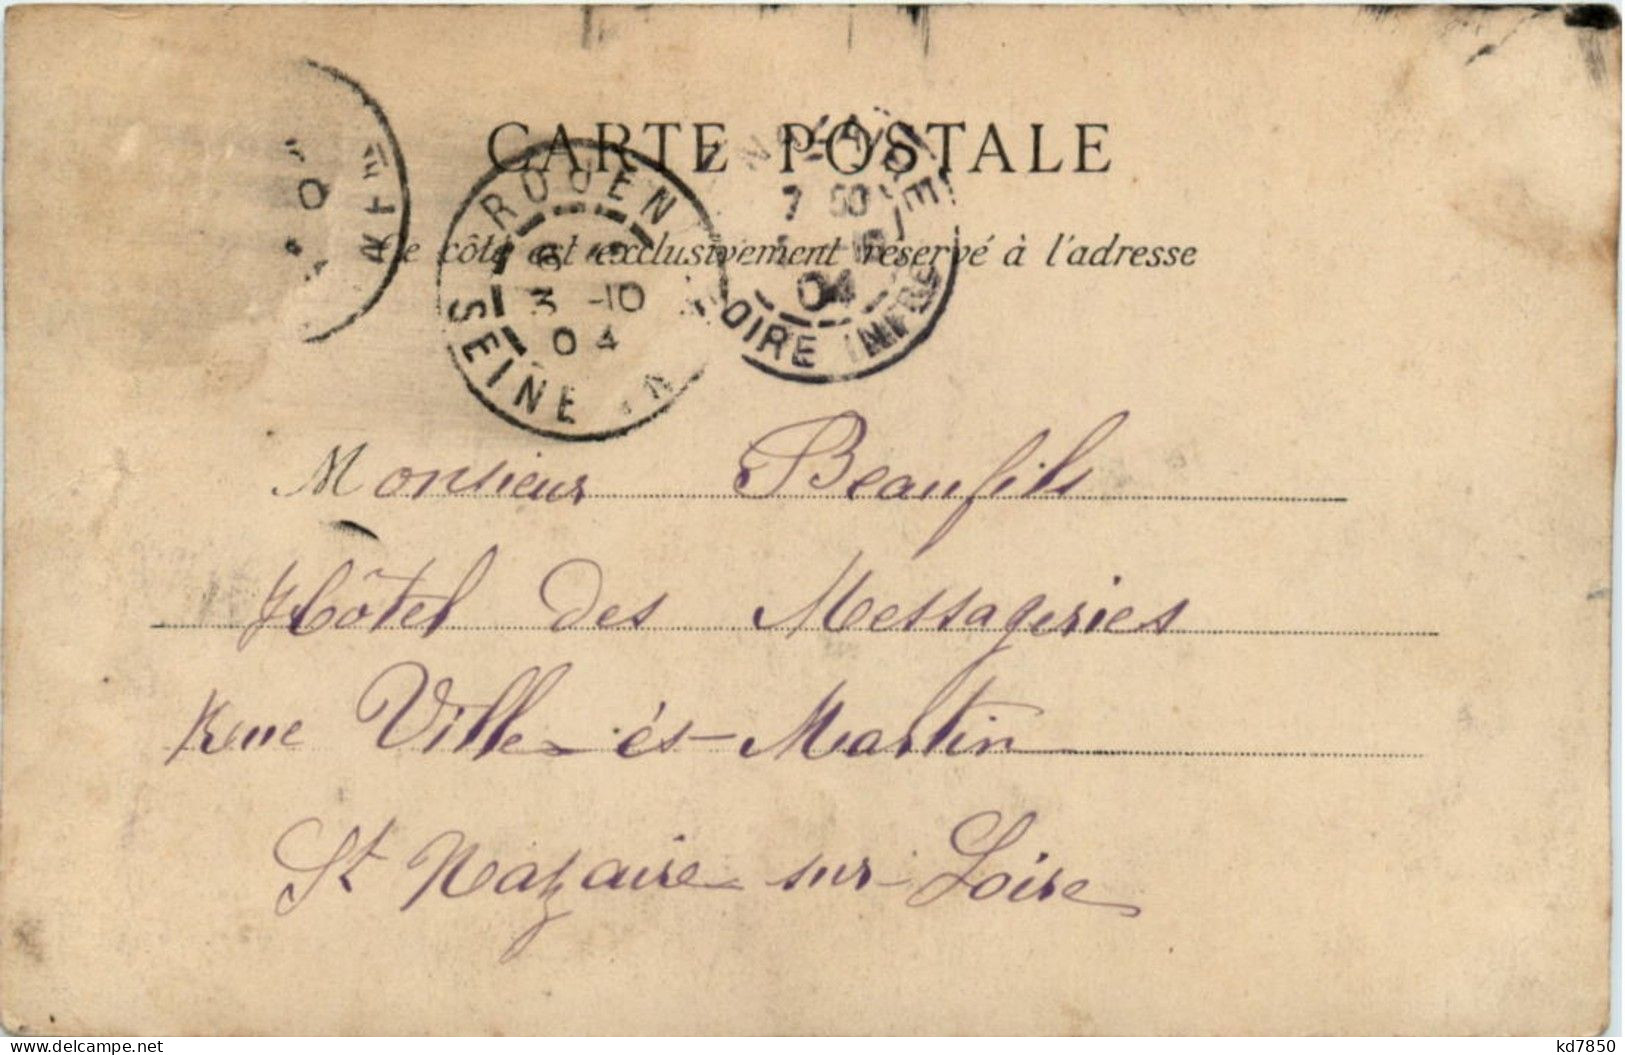 CARTE POSTALE
Ce côté est exclusivement réservé à l'adresse
ROUEN
3 -10
04
SEINE IN
7
04
LOIRE INFRE
Monsieur Beaufils
Hôtel des Messageries
Rue Ville-ès-Martin
St Nazaire sur Loire
www.delcampe.net
kd7850